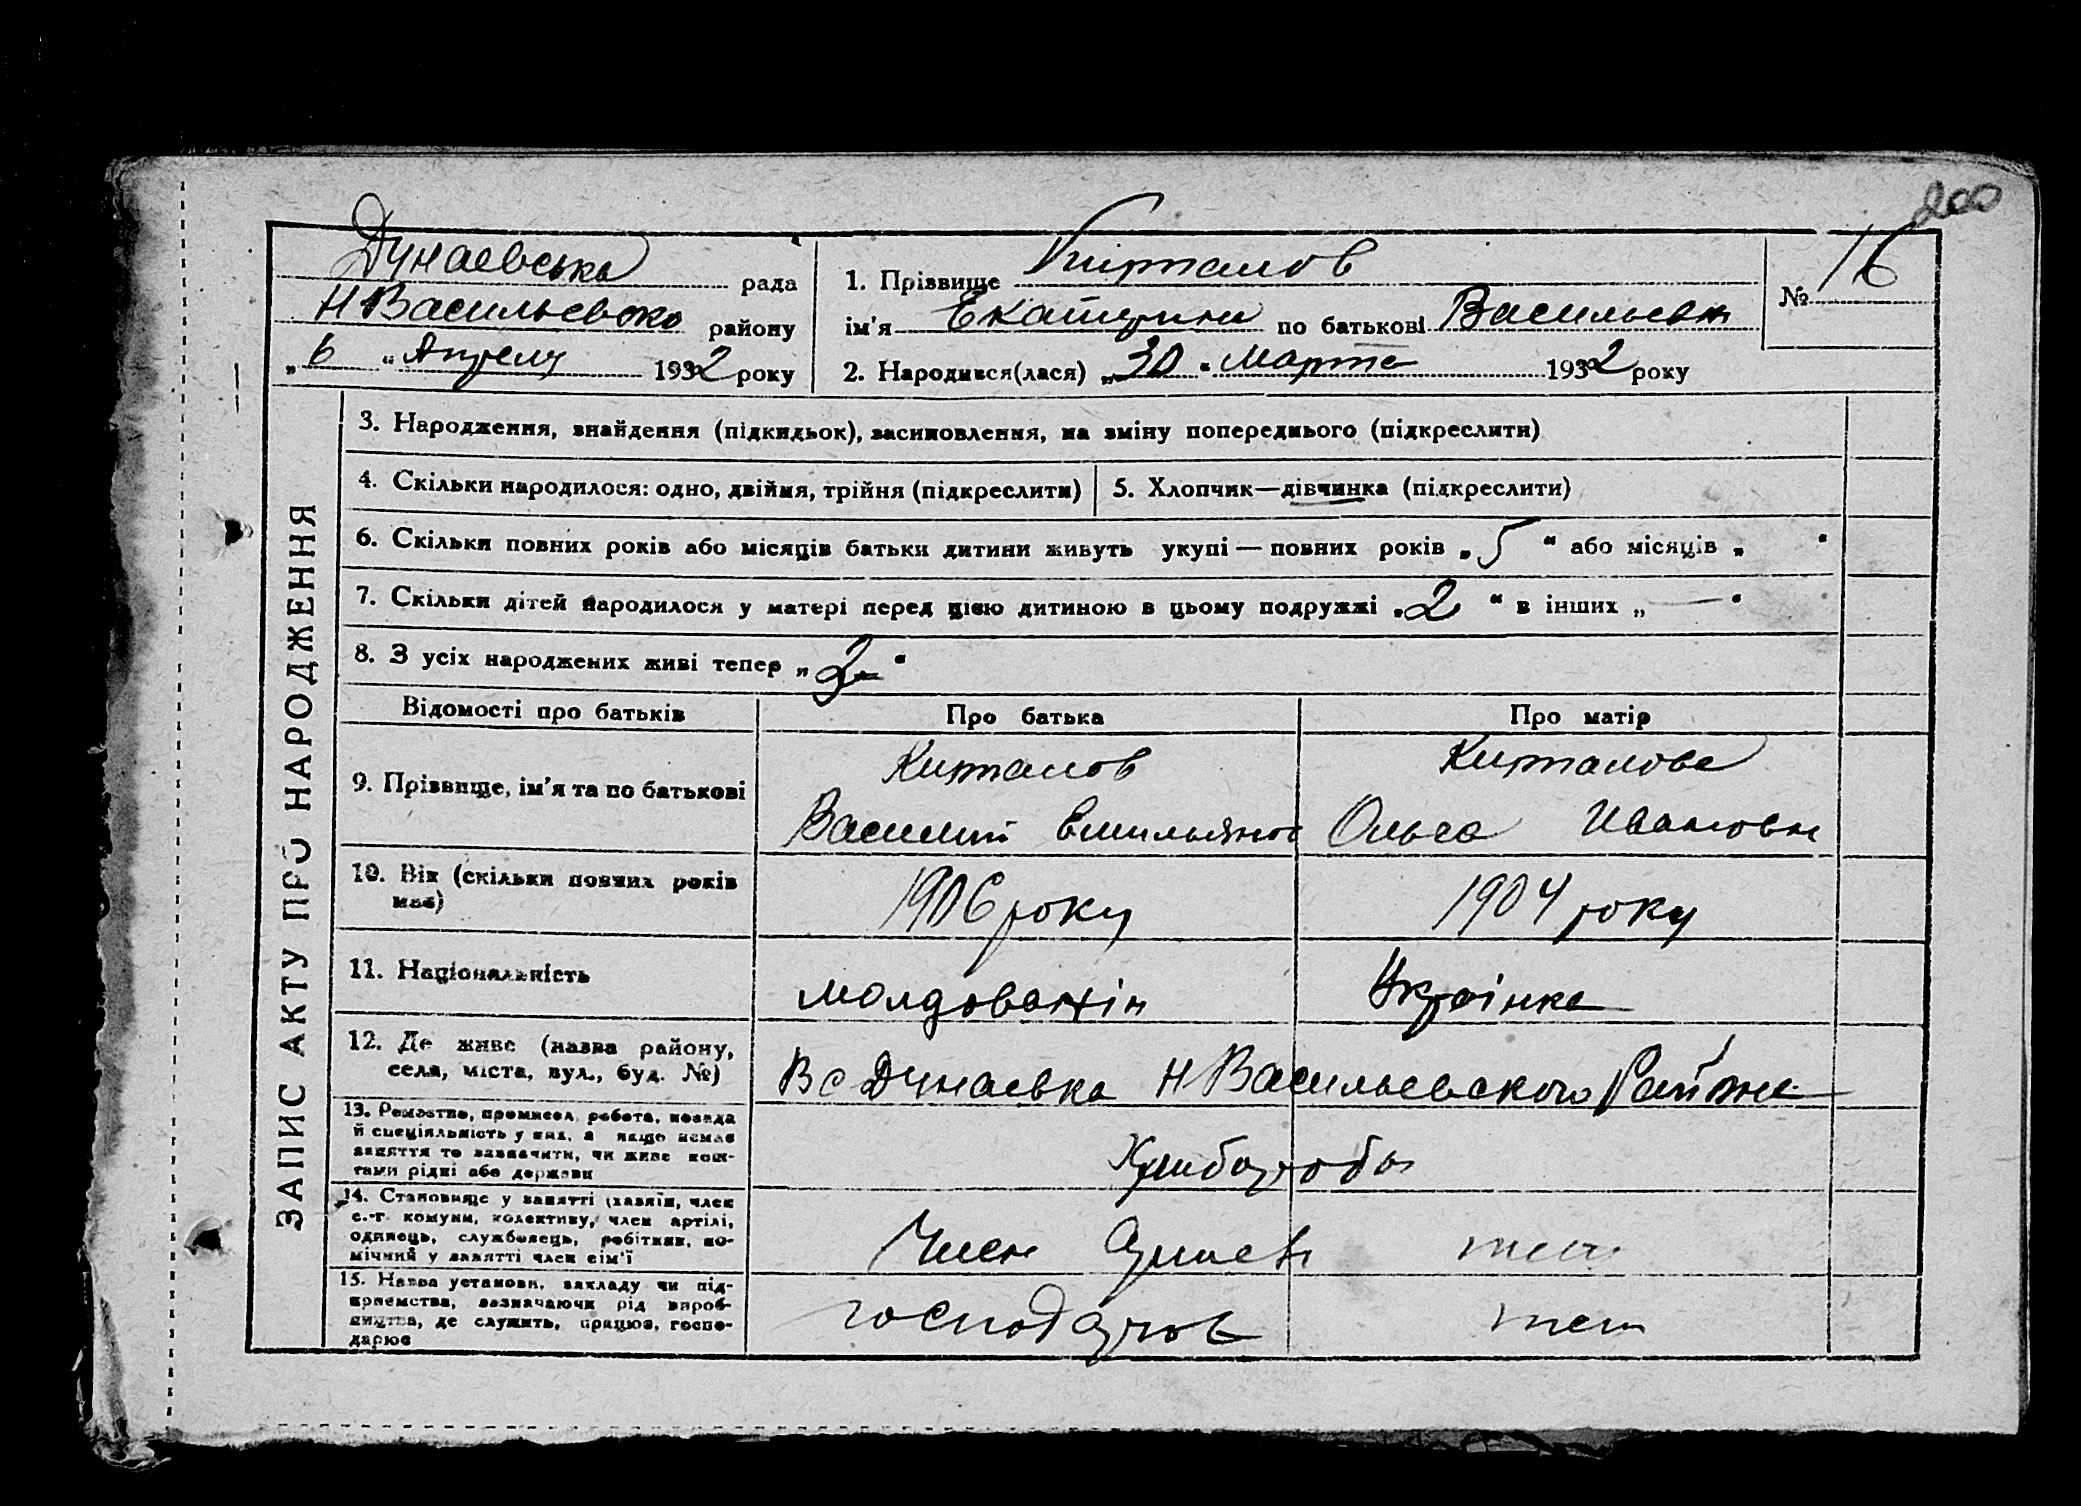 200
Дунаевська рада
Н Васильевско району
„6“ Апреля 1932 року
1. Прізвище Киртапов
ім'я Екатерина по батькові Васильевн
2. Народився(лася) „30“ Марта 1932 року
№ 16
ЗАПИС АКТУ ПРО НАРОДЖЕННЯ
3. Народження, знайдення (підкидьок), засиновлення, на зміну попереднього (підкреслити)
4. Скільки народилося: одно, двійня, трійня (підкреслити)
5. Хлопчик—дівчинка (підкреслити)
6. Скільки повних років або місяців батьки дитини живуть укупі — повних років „5“ або місяців „ “
7. Скільки дітей народилося у матері перед цією дитиною в цьому подружжі „2“ в інших „—“
8. З усіх народжених живі тепер „2“
Відомості про батьків
Про батька
Про матір
9. Прізвище, ім'я та по батькові
Василий Емильянов
Ольга Ивановн
10. Вік (скільки повних років
має)
1906 року
1904 року
11. Національність
молдованін
Українка
12. Де живе (назва району,
села, міста, вул., буд. №)
В с Дунаевка Н Васильевского
13. Ремество, промисел, робота, посада
й спеціяльність у них, а якщо немає
заняття то зазначити, чи живе кош-
тами рідні або держави
14. Становище у занятті (хазяїн, член
с.-г. комуни, колективу, член артілі,
одинець, службовець, робітник, по-
мічний у занятті член сім'ї
Член
15. Назва установи, закладу чи під-
приємства, зазначаючи рід вироб-
ництва, де служить, працює, госпо-
дарює